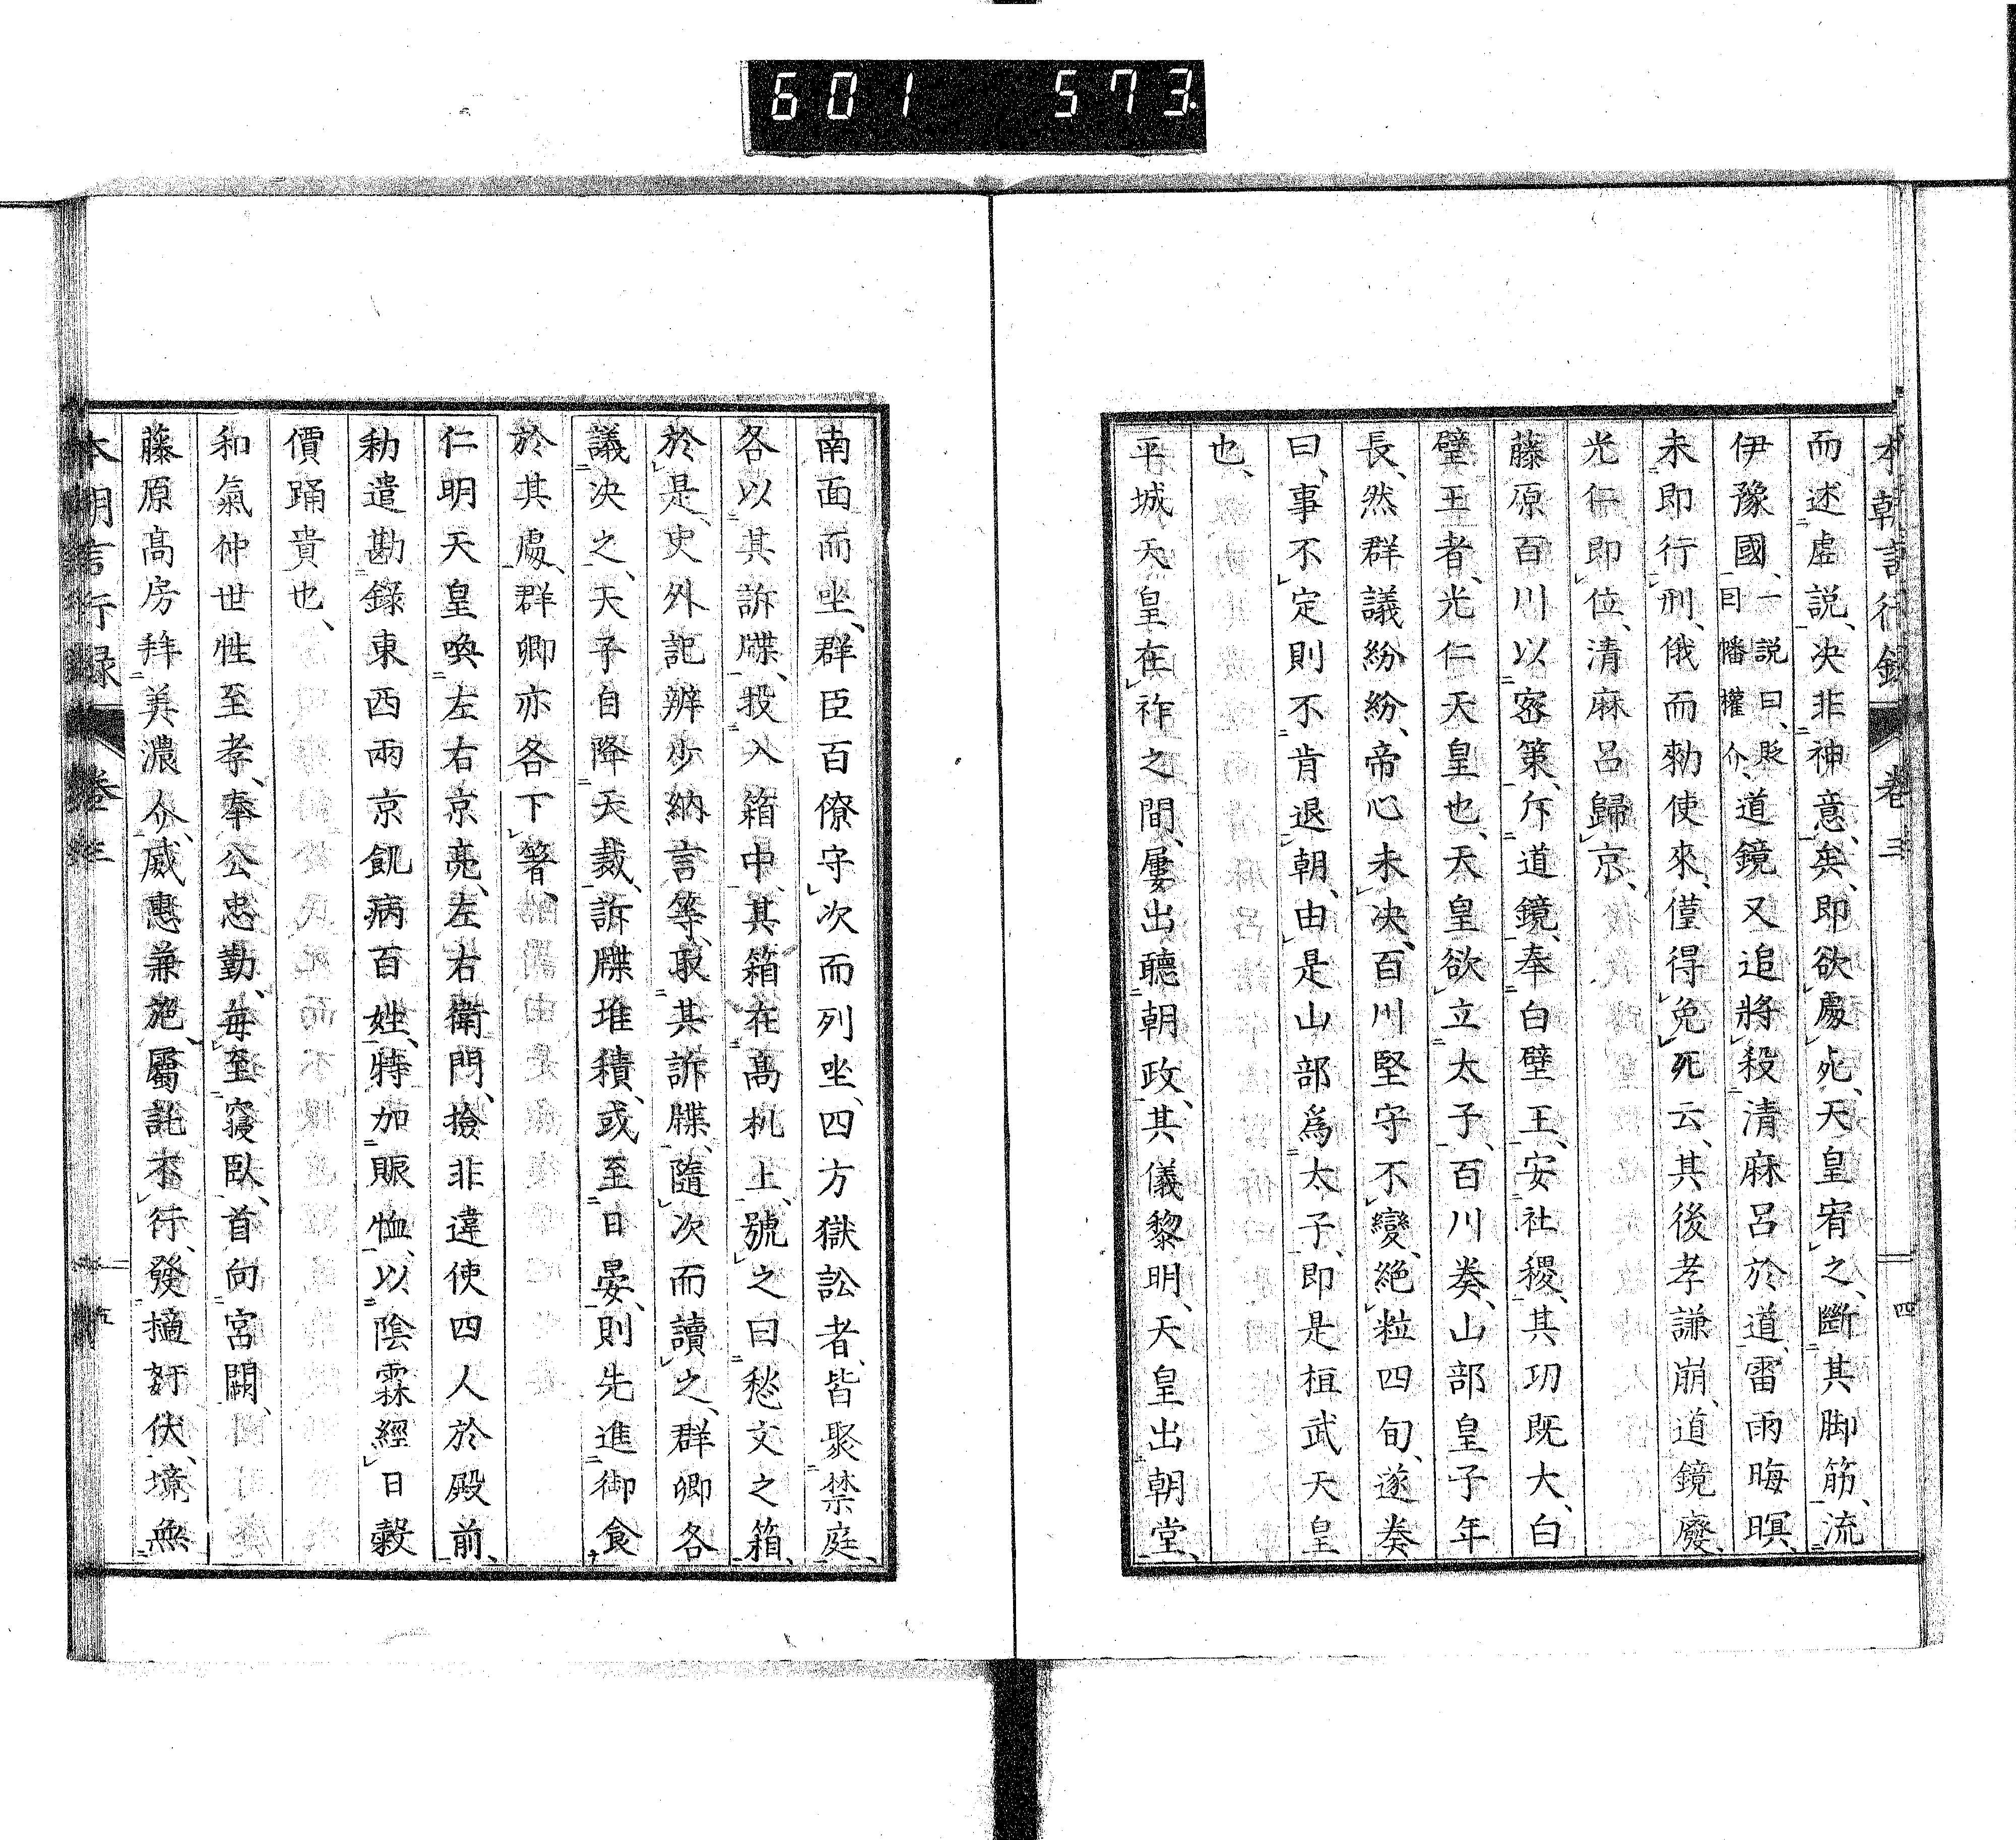 601 573
本朝言行録 卷三 四
而述虚説、决非神意矣、即欲處死、天皇宥之、斷其脚筋、流
伊豫國、一説曰、貶因幡權介、道鏡又追將殺清麻呂於道、雷雨晦暝、
未即行刑、俄而勅使來、僅得免死云、其後孝謙崩、道鏡廢、
光仁即位、清麻呂歸京、
藤原百川以密策、斥道鏡、奉白壁王、安社稷、其功既大、白
壁王者、光仁天皇也、天皇欲立太子、百川奏、山部皇子年
長、然群議紛紛、帝心未决、百川堅守不變、絶粒四旬、遂奏
曰、事不定則不肯退朝、由是山部爲太子、即是桓武天皇
也、
平城天皇在祚之間、屢出聽朝政、其儀黎明、天皇出朝堂、
南面而坐、群臣百僚守次而列坐、四方獄訟者、皆聚禁庭、
各以其訴牒、投入箱中、其箱在高机上、號之曰愁文之箱、
於是、吏外記辨少納言等、取其訴牒、隨次而讀之、群卿各
議决之、天子自降天裁、訴牒堆積、或至日晏、則先進御食
於其處、群卿亦各下箸、
仁明天皇喚左右京亮、左右衞門、撿非違使四人於殿前、
勅遣勘錄東西兩京飢病百姓、特加賑恤、以陰霖經日穀
價踊貴也、
和氣仲世性至孝、奉公忠勤、毎至寢臥、首向宮闕、
藤原高房拜美濃介、威惠兼施、屬託不行、發擿奸伏、境無
本朝言行録 卷三 五